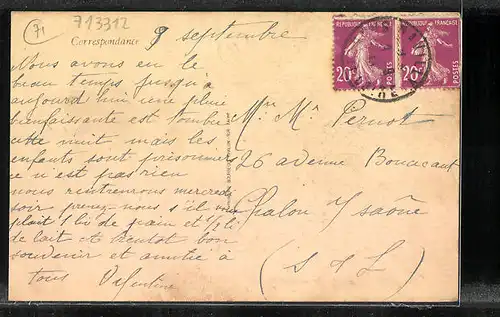 71
713312
Correspondance
9 septembre
Nous avons eu le
beau temps jusqu'à
aujourd'hui une pluie
bienfaisante est tombée
cette nuit mais les
enfants sont prisonniers
ce n'est pas rien
nous rentrerons mercredi
soir prenez-nous s'il vous
plait 1 liv de pain et 1/2 li
de lait et bientot bon
souvenir et amitié à
tous Valentine
RÉPUBLIQUE FRANÇAISE
20c
POSTES
RÉPUBLIQUE FRANÇAISE
20c
POSTES
Mr Me Pernot
26 avenue Boucicaut
Chalon s/ Saône
(S & L)